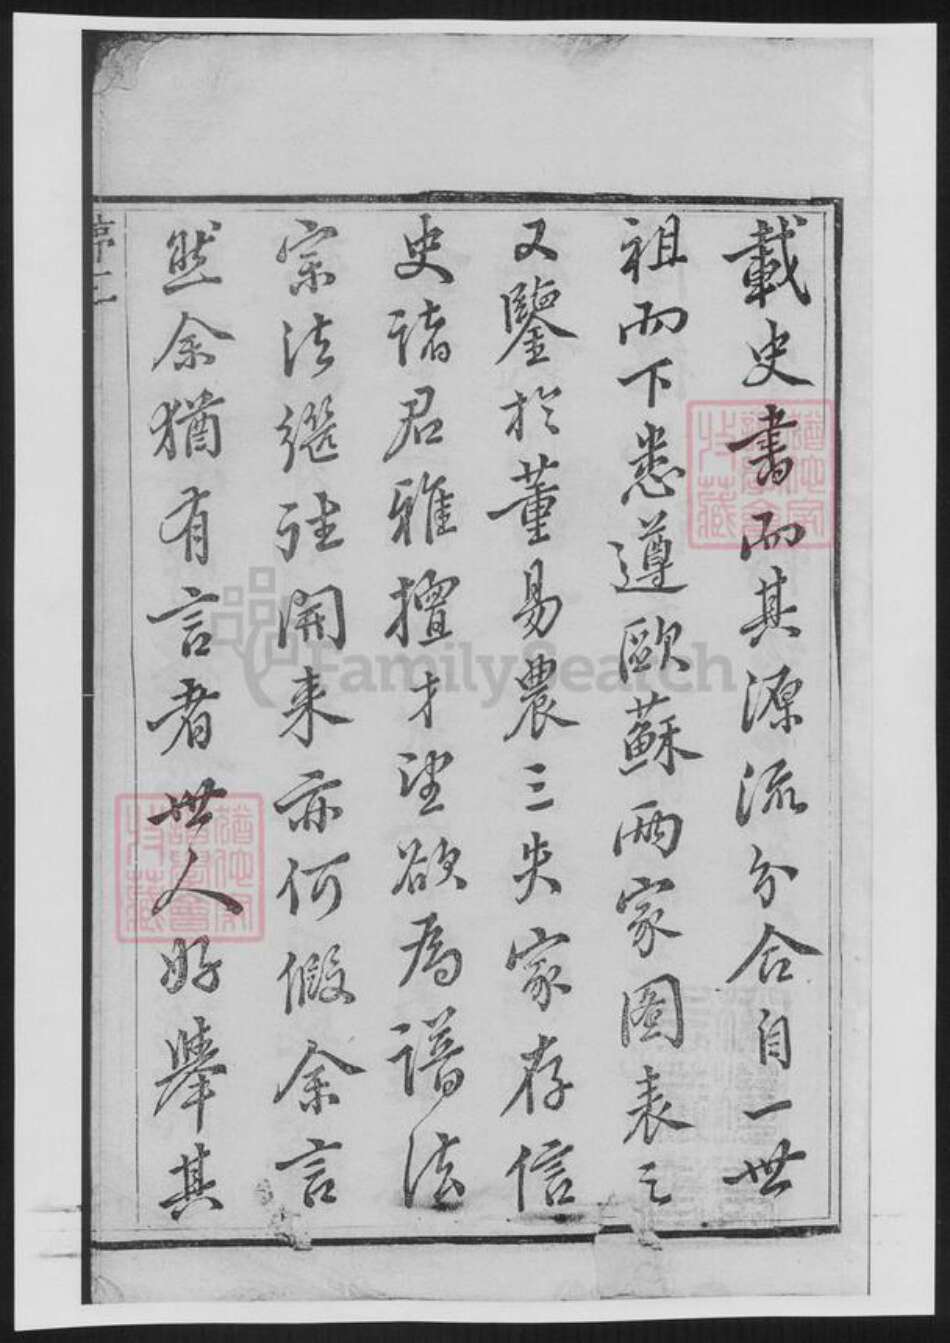 載史書而其源流分合自一世
祖而下悉遵歐蘇兩家圖表之
又鑒於董易農三失家存信
史諸君雅擅才望欲為譜法
宗法繼往開来亦何假余言
然余猶有言者世人好舉其
序 三
FamilySearch